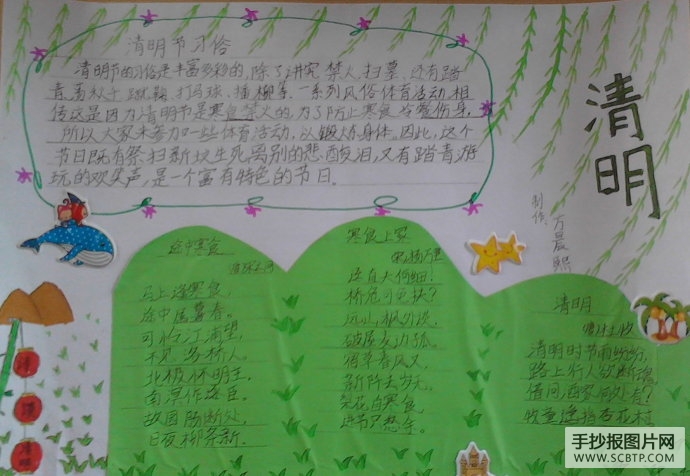 清明节习俗
清明节的习俗是丰富多彩的,除了讲究禁火、扫墓,还有踏
青、荡秋千、蹴鞠、打马球、插柳等一系列风俗体育活动。相
传这是因为清明节是寒食禁火的,为了防止寒食冷餐伤身,
所以大家来参加一些体育活动,以锻炼身体。因此,这个
节日既有祭扫新坟生死离别的悲酸泪,又有踏青游
玩的欢笑声,是一个富有特色的节日。
清明
制作:方晨熙
途中寒食
马上逢寒食,
途中属暮春。
可怜江浦望,
不见洛桥人。
北极怀明主,
南溟作逐臣。
故园肠断处,
日夜柳条新。
寒食上冢
宋 杨万里
迳直夫何细!
桥危可免扶?
远山枫外淡,
破屋麦边孤。
宿草春风又,
新阡去岁无。
梨花自寒食,
进节只愁余。
清明
唐 杜牧
清明时节雨纷纷,
路上行人欲断魂。
借问酒家何处有?
牧童遥指杏花村
手抄报图片网
WWW.SCBTP.COM